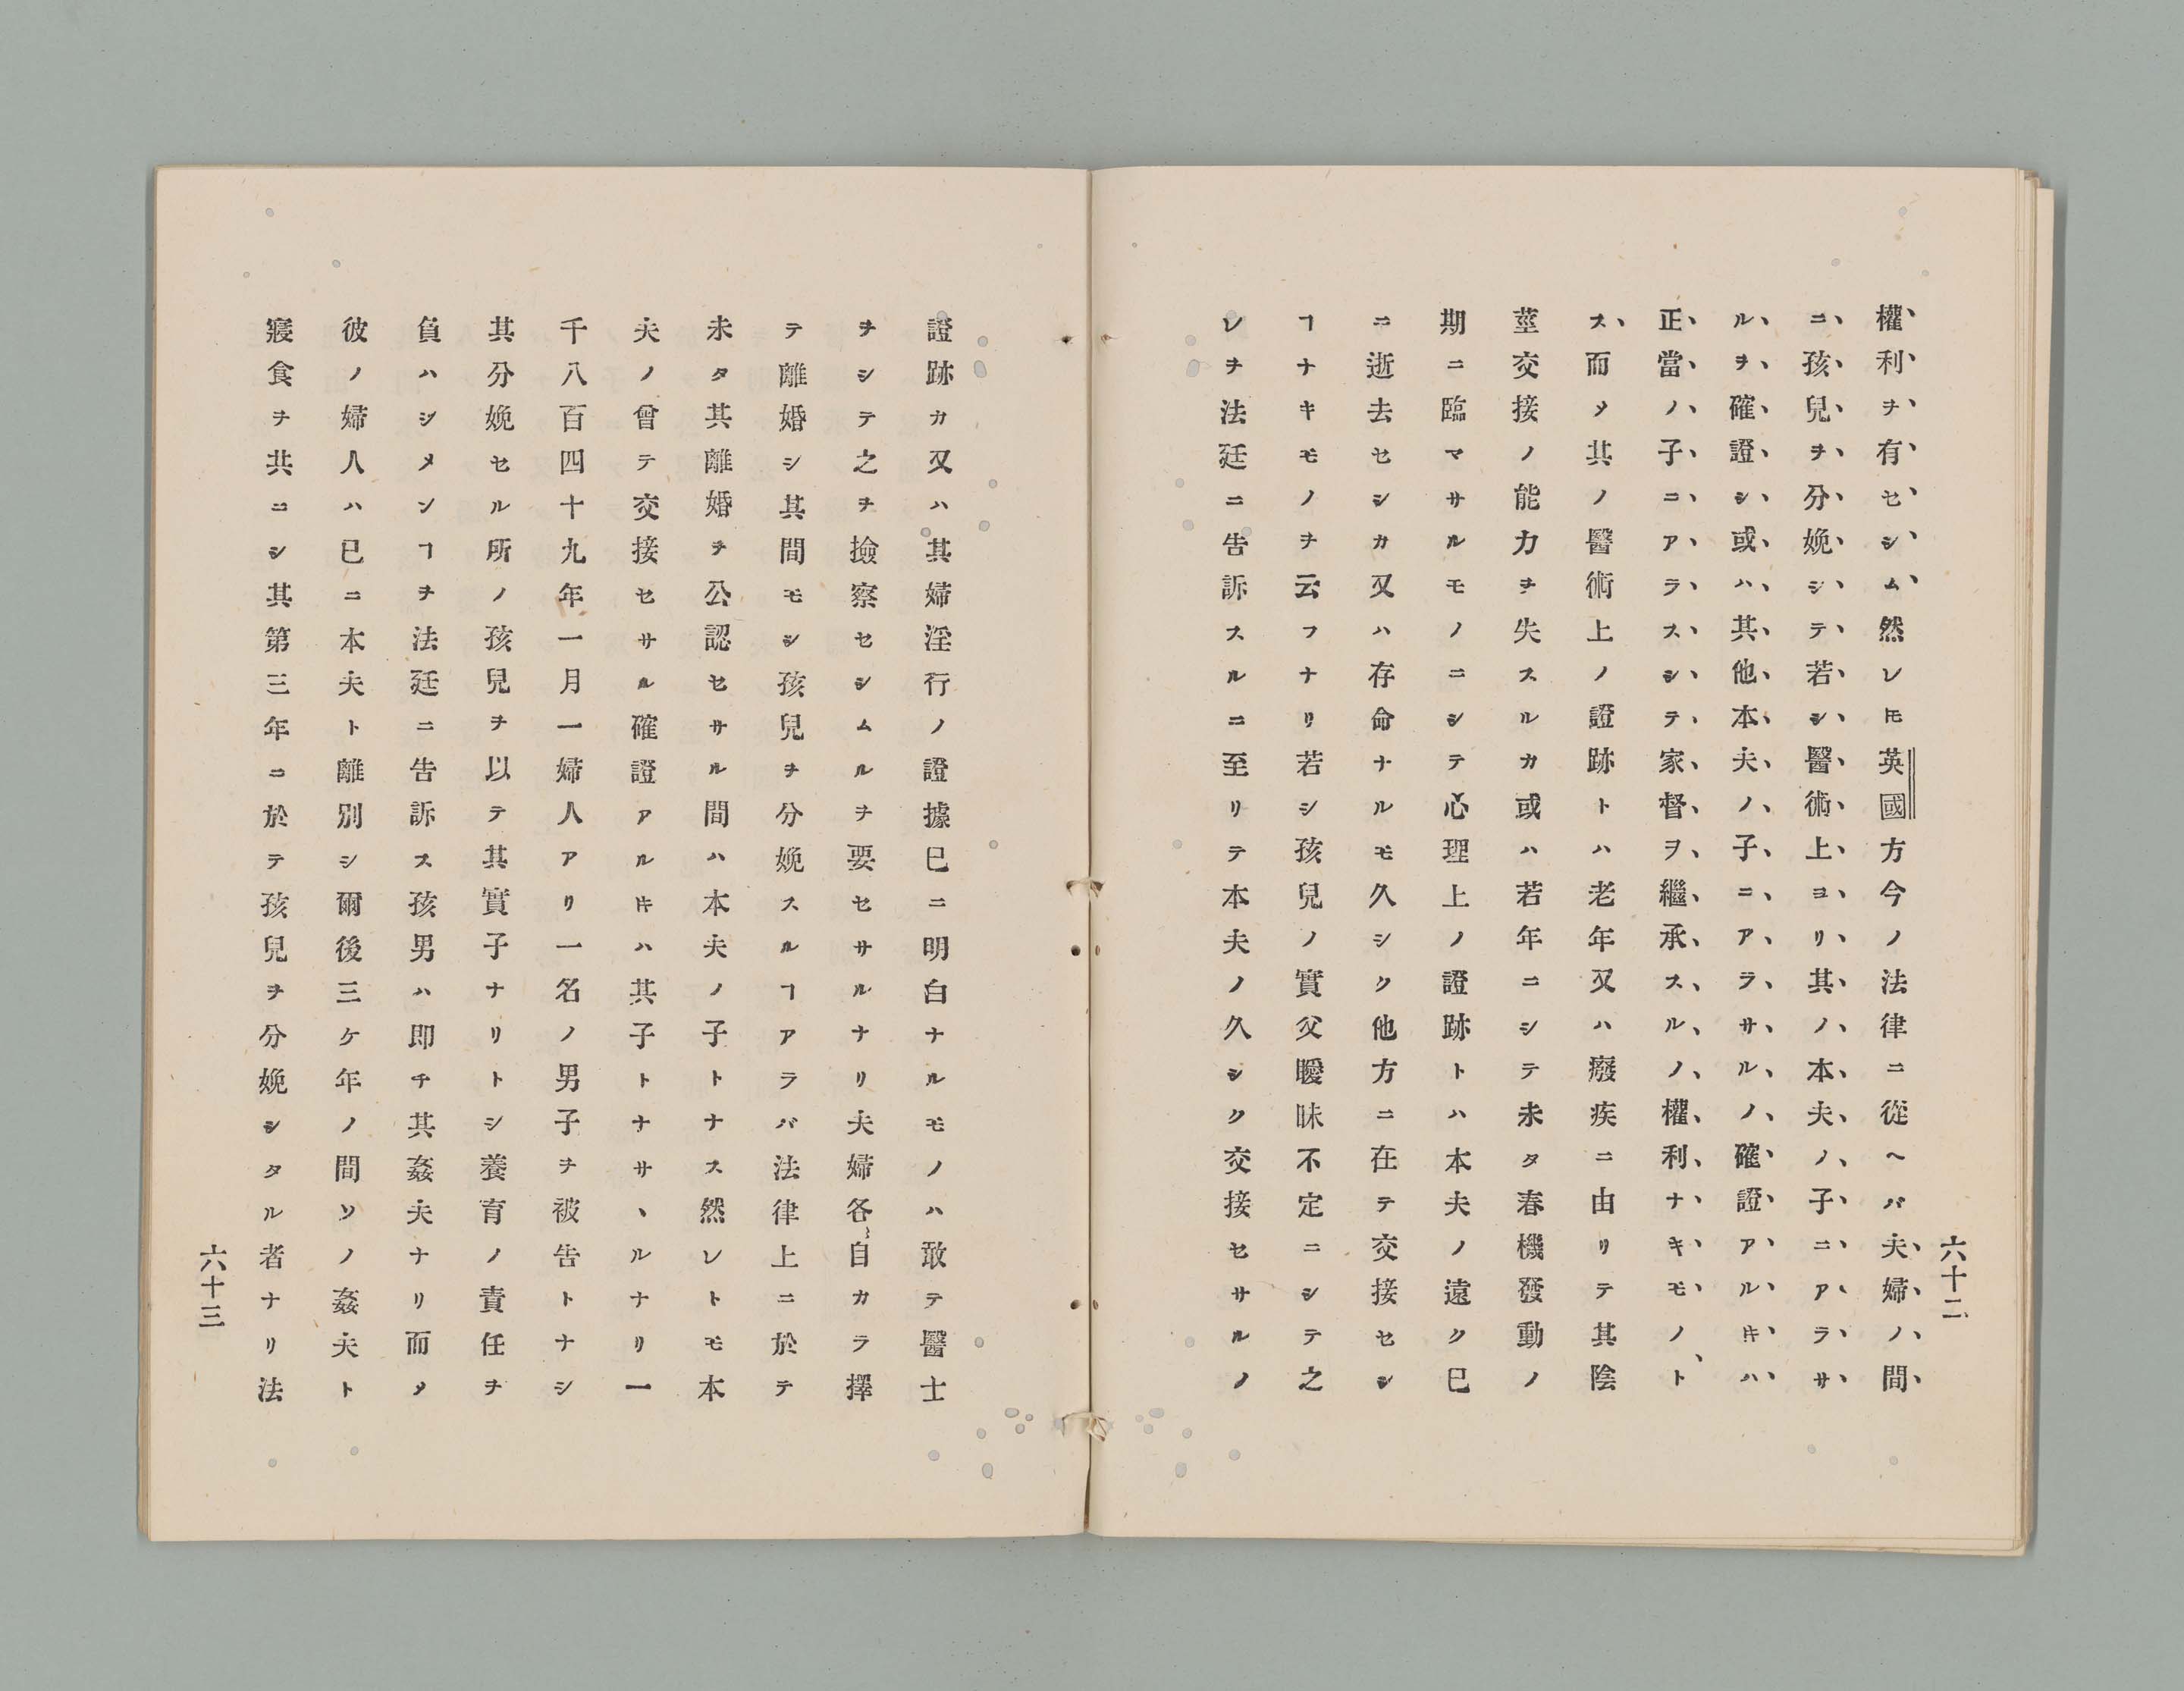 六十二
權利ヲ有セシム然レ𪜈英國方今ノ法律ニ從ヘバ夫婦ノ間
ニ孩兒ヲ分娩シテ若シ醫術上ヨリ其ノ本夫ノ子ニアラサ
ルヲ確證シ或ハ其他本夫ノ子ニアラサルノ確證アル𪜈ハ
正當ノ子ニアラスシテ家督ヲ繼承スルノ權利ナキモノト
ス而メ其ノ醫術上ノ證跡トハ老年又ハ癈疾ニ由リテ其陰
莖交接ノ能力ヲ失スルカ或ハ若年ニシテ未タ春機發動ノ
期ニ臨マサルモノニシテ心理上ノ證跡トハ本夫ノ遠ク已
ニ逝去セシカ又ハ存命ナルモ久シク他方ニ在テ交接セシ
ヿナキモノヲ云フナリ若シ孩兒ノ實父曖昧不定ニシテ之
レヲ法廷ニ告訴スルニ至リテ本夫ノ久シク交接セサルノ
證跡カ又ハ其婦淫行ノ證據已ニ明白ナルモノハ敢テ醫士
ヲシテ之ヲ撿察セシムルヲ要セサルナリ夫婦各自カラ擇
テ離婚シ其間モシ孩兒ヲ分娩スルヿアラバ法律上ニ於テ
未タ其離婚ヲ公認セサル間ハ本夫ノ子トナス然レトモ本
夫ノ曾テ交接セサル確證アル𪜈ハ其子トナサヽルナリ一
千八百四十九年一月一婦人アリ一名ノ男子ヲ被告トナシ
其分娩セル所ノ孩兒ヲ以テ其實子ナリトシ養育ノ責任ヲ
負ハシメンヿヲ法廷ニ告訴ス孩男ハ即チ其姦夫ナリ而メ
彼ノ婦人ハ已ニ本夫ト離別シ爾後三ケ年ノ間ソノ姦夫ト
寢食ヲ共ニシ其第三年ニ於テ孩兒ヲ分娩シタル者ナリ法
六十三